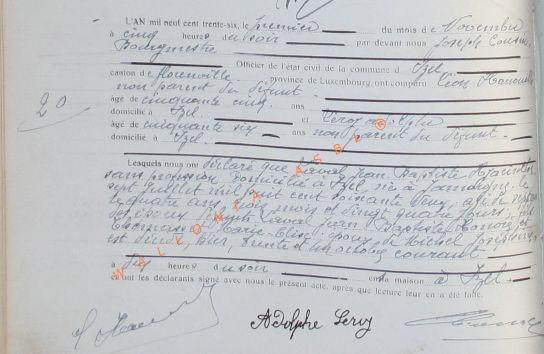 L'AN mil neuf cent trente-six, le premier du mois de Novembre
à cinq heures du soir par devant nous Joseph
Bourgmestre
Officier de l'état civil de la commune d' Izel
canton de florenville province de Luxembourg, ont comparu Léon
non parent du défunt
âgé de cinquante cinq ans
domicilié à Izel et Leroy Adolphe
âgé de cinquante six ans non parent du défunt
domicilié à Izel
20
Lesquels nous ont déclaré que Laval Jean Baptiste
sans profession domicilié à Izel, né à Jamoigne le
sept juillet mil huit cent soixante deux, âgé de septante
quatre ans, trois mois et vingt quatre jours, fils
des époux Laval Jean Baptiste
Marie époux de
est décédé hier, trente et un octobre courant
à dix heures du soir en sa maison à Izel.
et ont les déclarants signé avec nous le présent acte, après que lecture leur en a été faite.
Adolphe Leroy
WALLONIA ASBL ©